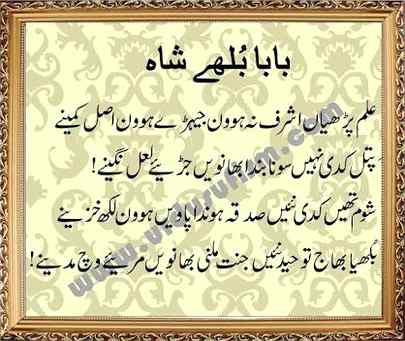 بابا بُلھے شاہ
علم پڑھیاں اشرف نہ ہوون جیہڑے ہوون اصل کمینے
پتل کدی نہیں سونا بندا بھانویں جڑیئے لعل نگینے!
شوم تھیں کدی نئیں صدقہ ہوندا پاویں ہوون لکھ خزینے
بلھیا بھاج توحید نئیں جنت ملنی بھانویں مریئے وچ مدینے!